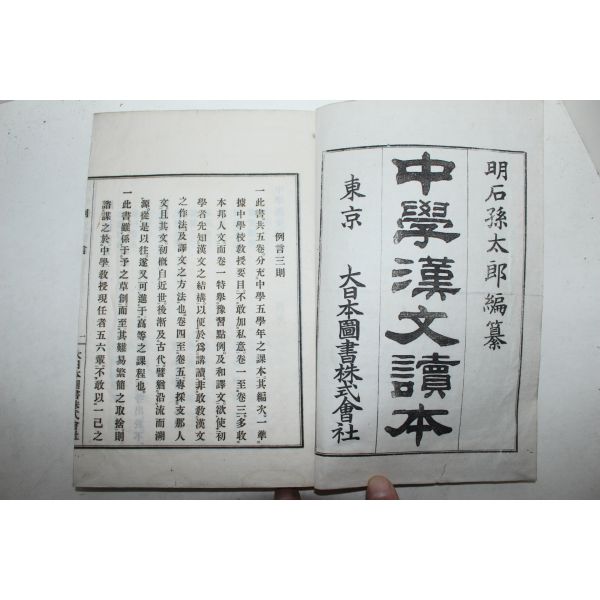 明石孫太郎編纂
中學漢文讀本
東京 大日本圖書株式會社
例言三則
一此書共五卷分充中學五學年之課本其編次一準
據中學校敎授要目不敢加私意卷一至卷三多收
本邦人文而卷一特擧豫習點例及和譯文欲使初
學者先知漢文之結構以便於爲講讀非敢敎漢文
之作法及譯文之方法也卷四至卷五專採支那人
文且其文初概自近世後漸及古代譬猶沿流而溯
源從是以往遂又可進于高等之課程也
一此書雖係于予之草創而至其難易繁簡之取捨則
諮謀之於中學敎授現任者五六輩不敢以一己之
例言
一 大日本圖書株式會社